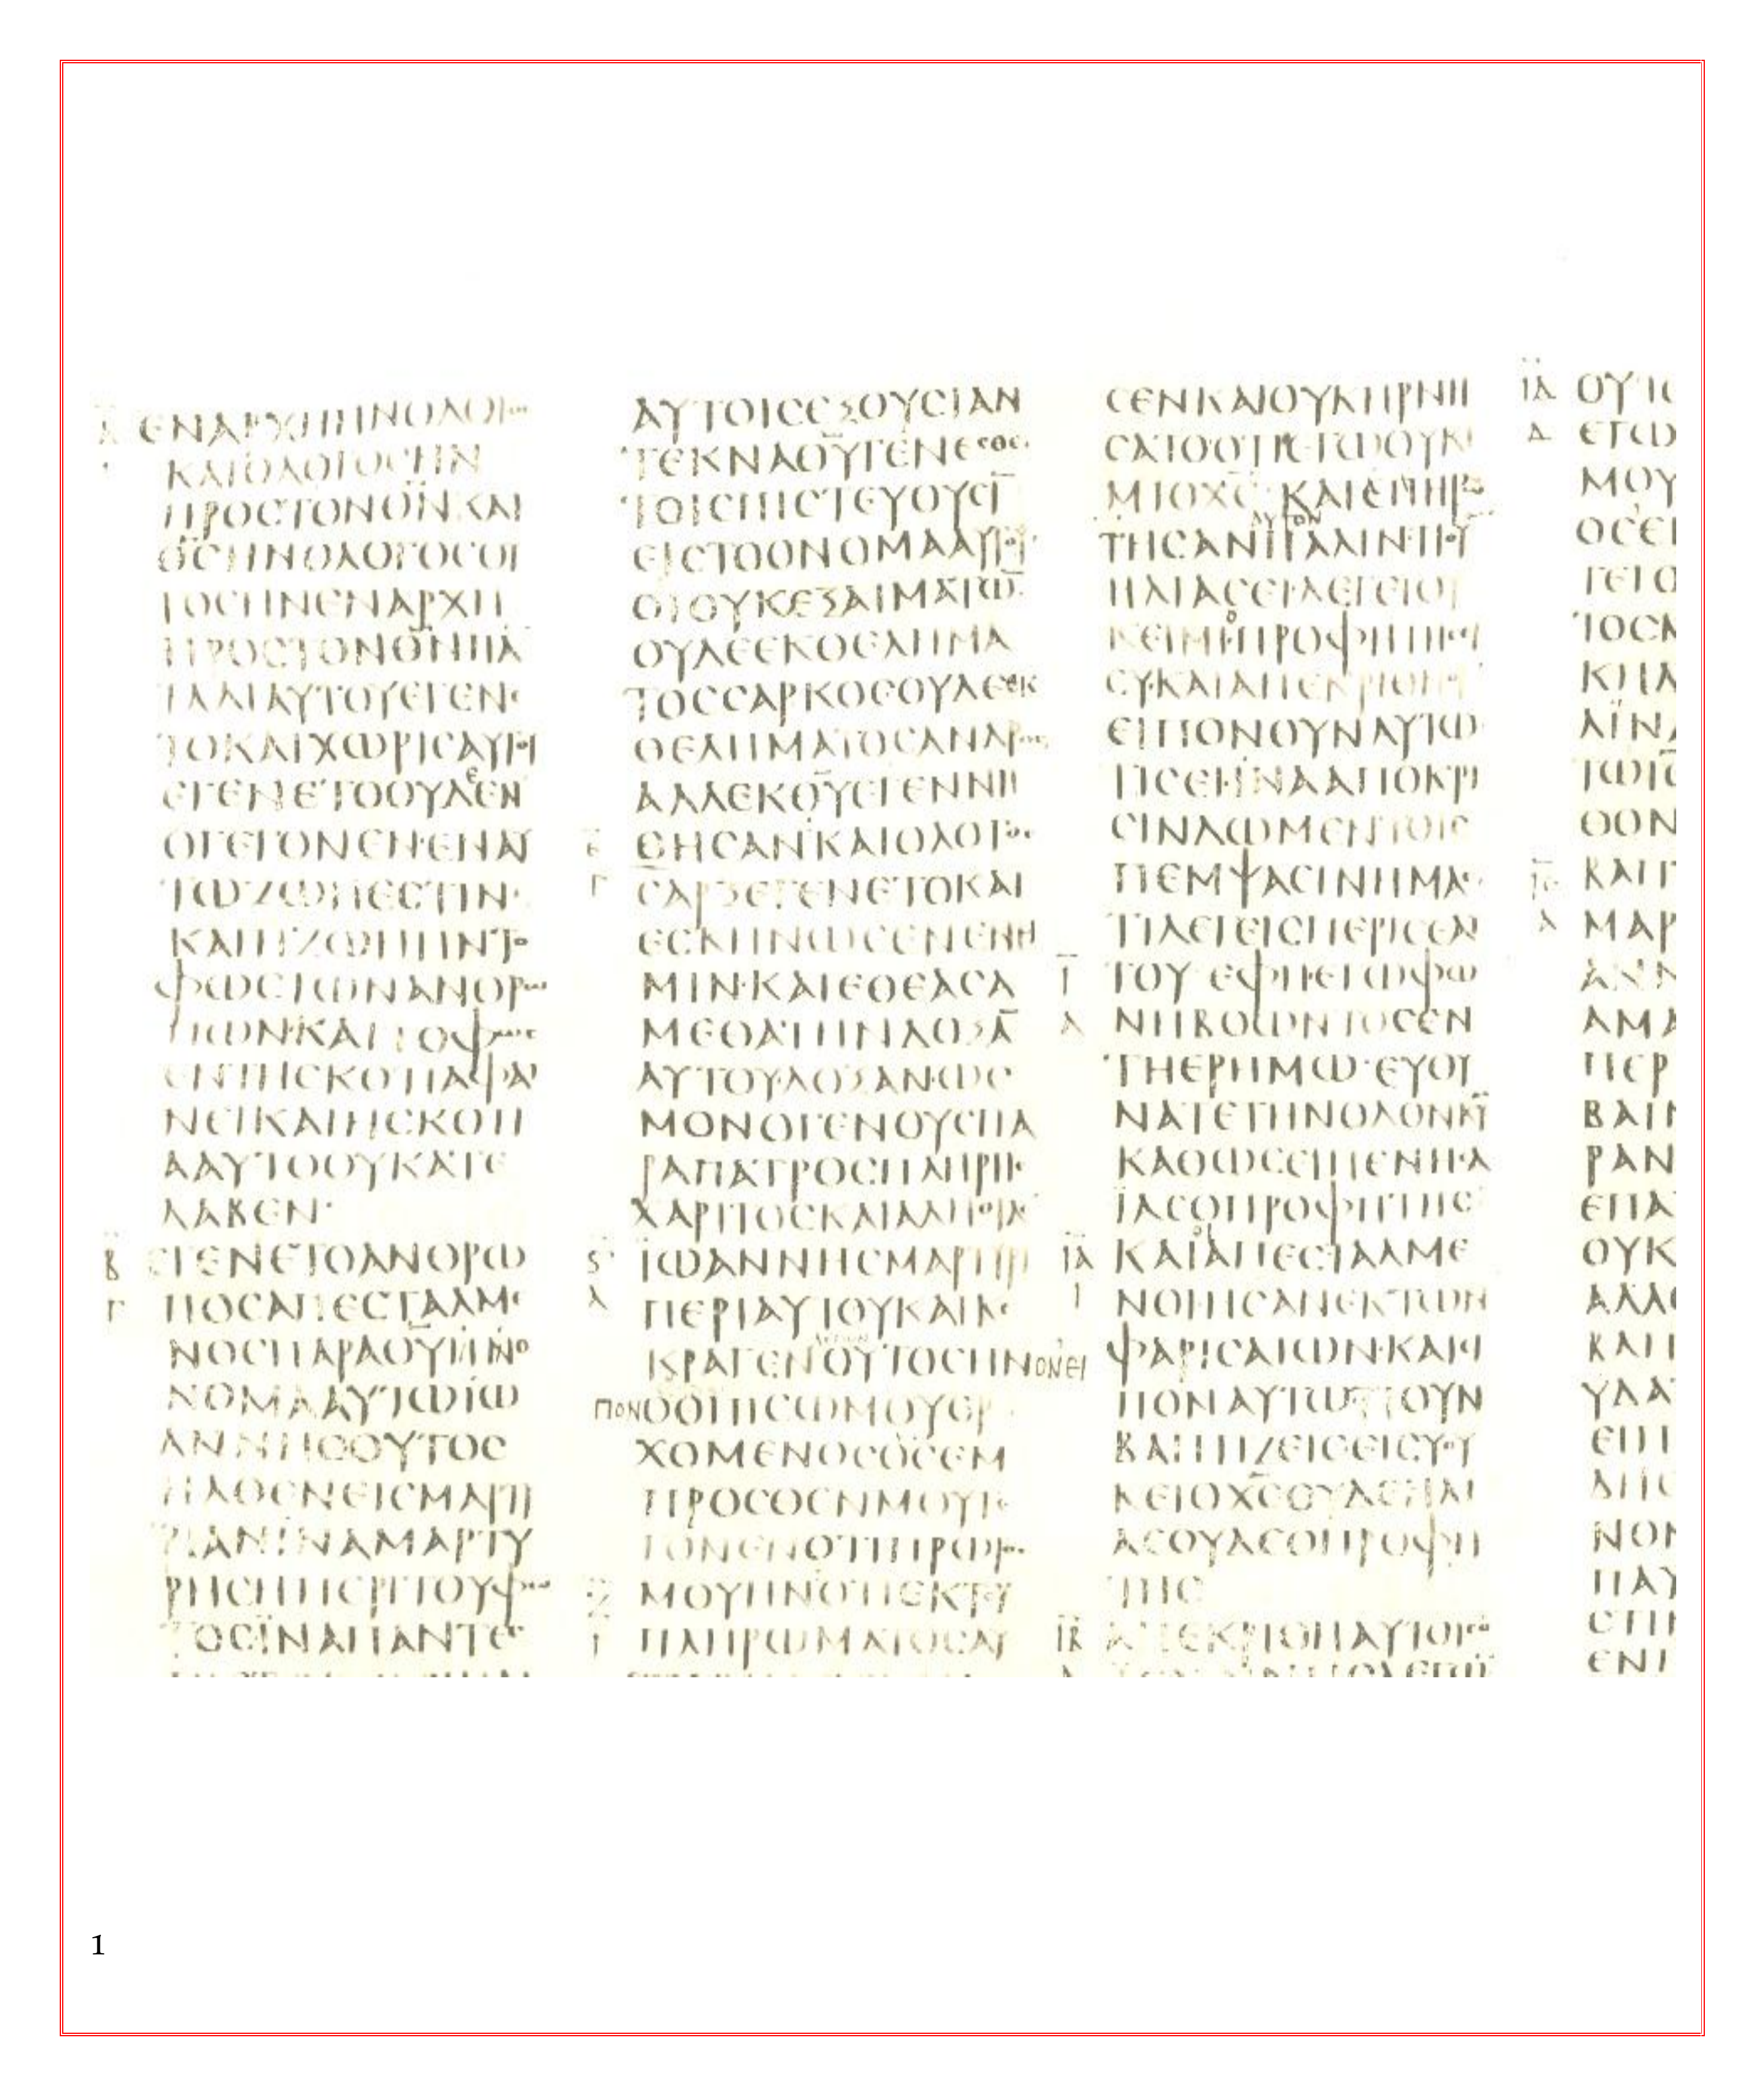 ΕΝΑΡΧΗΗΝΟΛΟΓΟC
ΚΑΙΟΛΟΓΟCΗΝ
ΠΡΟCΤΟΝΘΝ ΚΑΙ
ΘCΗΝΟΛΟΓΟCΟΥ
ΤΟCΗΝΕΝΑΡΧΗ
ΠΡΟCΤΟΝΘΝΠΑ
ΤΑΔΙΑΥΤΟΥΕΓΕΝΕ
ΤΟΚΑΙΧΩΡΙCΑΥΤΟΥ
ΕΓΕΝΕΤΟΟΥΔΕΝ
ΟΓΕΓΟΝΕΝ·ΕΝΑΥ
ΤΩΖΩΗΕCΤΙΝ·
ΚΑΙΗΖΩΗΗΝΤΟ
ΦΩCΤΩΝΑΝΘΡΩ
ΠΩΝ·ΚΑΙΤΟΦΩC
ΕΝΤΗCΚΟΤΙΑΦΑΙ
ΝΕΙΚΑΙΗCΚΟΤΙ
ΑΑΥΤΟΟΥΚΑΤΕ
ΛΑΒΕΝ·
Β ΕΓΕΝΕΤΟΑΝΘΡΩ
Γ ΠΟCΑΠΕCΤΑΛΜΕ
ΝΟCΠΑΡΑΘΥΗΝΟ
ΝΟΜΑΑΥΤΩΙΩ
ΑΝΝΗCΟΥΤΟC
ΗΛΘΕΝΕΙCΜΑΡΤΥ
ΡΙΑΝΙΝΑΜΑΡΤΥ
ΡΗCΗΠΕΡΙΤΟΥΦΩ
ΤΟCΪΝΑΠΑΝΤΕC
ΑΥΤΟΙCΕΞΟΥCΙΑΝ
ΤΕΚΝΑΘΥΓΕΝΕCΘΕ
ΤΟΙCΠΙCΤΕΥΟΥCΙ
ΕΙCΤΟΟΝΟΜΑΑΥΤΟΥ
ΟΙΟΥΚΕΞΑΙΜΑΤΩ
ΟΥΔΕΕΚΘΕΛΗΜΑ
ΤΟCCΑΡΚΟCΟΥΔΕΕΚ
ΘΕΛΗΜΑΤΟCΑΝΔΡΟC
ΑΛΛΕΚΘΥΕΓΕΝΝΗ
ΘΗCΑΝΚΑΙΟΛΟΓΟC
Γ CΑΡΞΕΓΕΝΕΤΟΚΑΙ
ΕCΚΗΝΩCΕΝΕΝΗ
ΜΙΝ·ΚΑΙΕΘΕΑCΑ
ΜΕΘΑΤΗΝΔΟΞΑ
ΑΥΤΟΥ·ΔΟΞΑΝ·ΩC
ΜΟΝΟΓΕΝΟΥCΠΑ
ΡΑΠΑΤΡΟCΠΛΗΡΗC
ΧΑΡΙΤΟCΚΑΙΑΛΗΘΙΑC
ΪΩΑΝΝΗCΜΑΡΤΥΡΙ
ΠΕΡΙΑΥΤΟΥΚΑΙΚΕ
ΛΕΓΩΝ
ΚΡΑΓΕΝΟΥΤΟCΗΝΟΝΕΙ
ΠΟΝΟΟΠΙCΩΜΟΥΕΡ
ΧΟΜΕΝΟCΟCΕΜ
ΠΡΟCΘΕΝΜΟΥΓΕ
ΓΟΝΕΝΟΤΙΠΡΩΤΟC
ΜΟΥΗΝΟΤΙΕΚΤΟΥ
ΠΛΗΡΩΜΑΤΟCΑΥ
CΕΝΚΑΙΟΥΚΗΡΝΗ
CΑΤΟΟΤΙΕΓΩΟΥΚΙ
ΜΙΟΧC ΚΑΙΕΠΗΡΩ
ΑΥΤΟΝ
ΤΗCΑΝΠΑΛΙΝ·ΤΙΟΥ
ΗΛΙΑCΕΙΛΕΓΕΙΟΥ
ΚΕΙΜΙΠΡΟΦΗΤΗCΕΙ
CΥΚΑΙΑΠΕΚΡΙΘΗΟΥ
ΕΙΠΟΝΟΥΝΑΥΤΩ
ΤΙCΕΙΙΝΑΑΠΟΚΡΙ
CΙΝΔΩΜΕΝΤΟΙC
ΠΕΜΨΑCΙΝΗΜΑC
ΤΙΛΕΓΕΙCΠΕΡΙCΕΑΥ
Ι ΤΟΥ ΕΦΗΕΓΩΦΩ
Α ΝΗΒΟΩΝΤΟCΕΝ
ΤΗΕΡΗΜΩ·ΕΥΘΥ
ΝΑΤΕΤΗΝΟΔΟΝΚΥ
ΚΑΘΩCΕΙΠΕΝΗCΑ
ΪΑCΟΠΡΟΦΗΤΗC
ΙΑ ΚΑΙΑΠΕCΤΑΛΜΕ
Ι ΝΟΙΗCΑΝΕΚΤΩΝ
ΦΑΡΙCΑΙΩΝ·ΚΑΙΕΙ
ΠΟΝΑΥΤΩΤΙΟΥΝ
ΒΑΠΤΙΖΕΙCΕΙCΥΟΥ
ΚΕΙΟΧCΟΥΔΕΗΛΙ
ΑCΟΥΔΕΟΠΡΟΦΗ
ΤΗC
ΙΒ ΑΠΕΚΡΙΘΗΑΥΤΟΙCΟ
ΙΔ ΟΥΤΟ
Δ ΕΓΩ
ΜΟΥ
ΟCΕΙ
ΓΕΙΟ
ΤΟCΑ
ΚΗΛ
ΛΙΝΑ
ΤΩΙC
ΘΟΝ
ΚΑΙΓ
Α ΜΑΡ
ΑΝΝ
ΑΜΑ
ΠΕΡ
ΒΑΙΝ
ΡΑΝ
ΕΠΑ
ΟΥΚ
ΑΛΛ
ΒΑΠ
ΥΔΑ
ΕΠΙ
ΔΗC
ΝΟΝ
ΠΑΥ
CΤΙΝ
ΕΝΙ
1